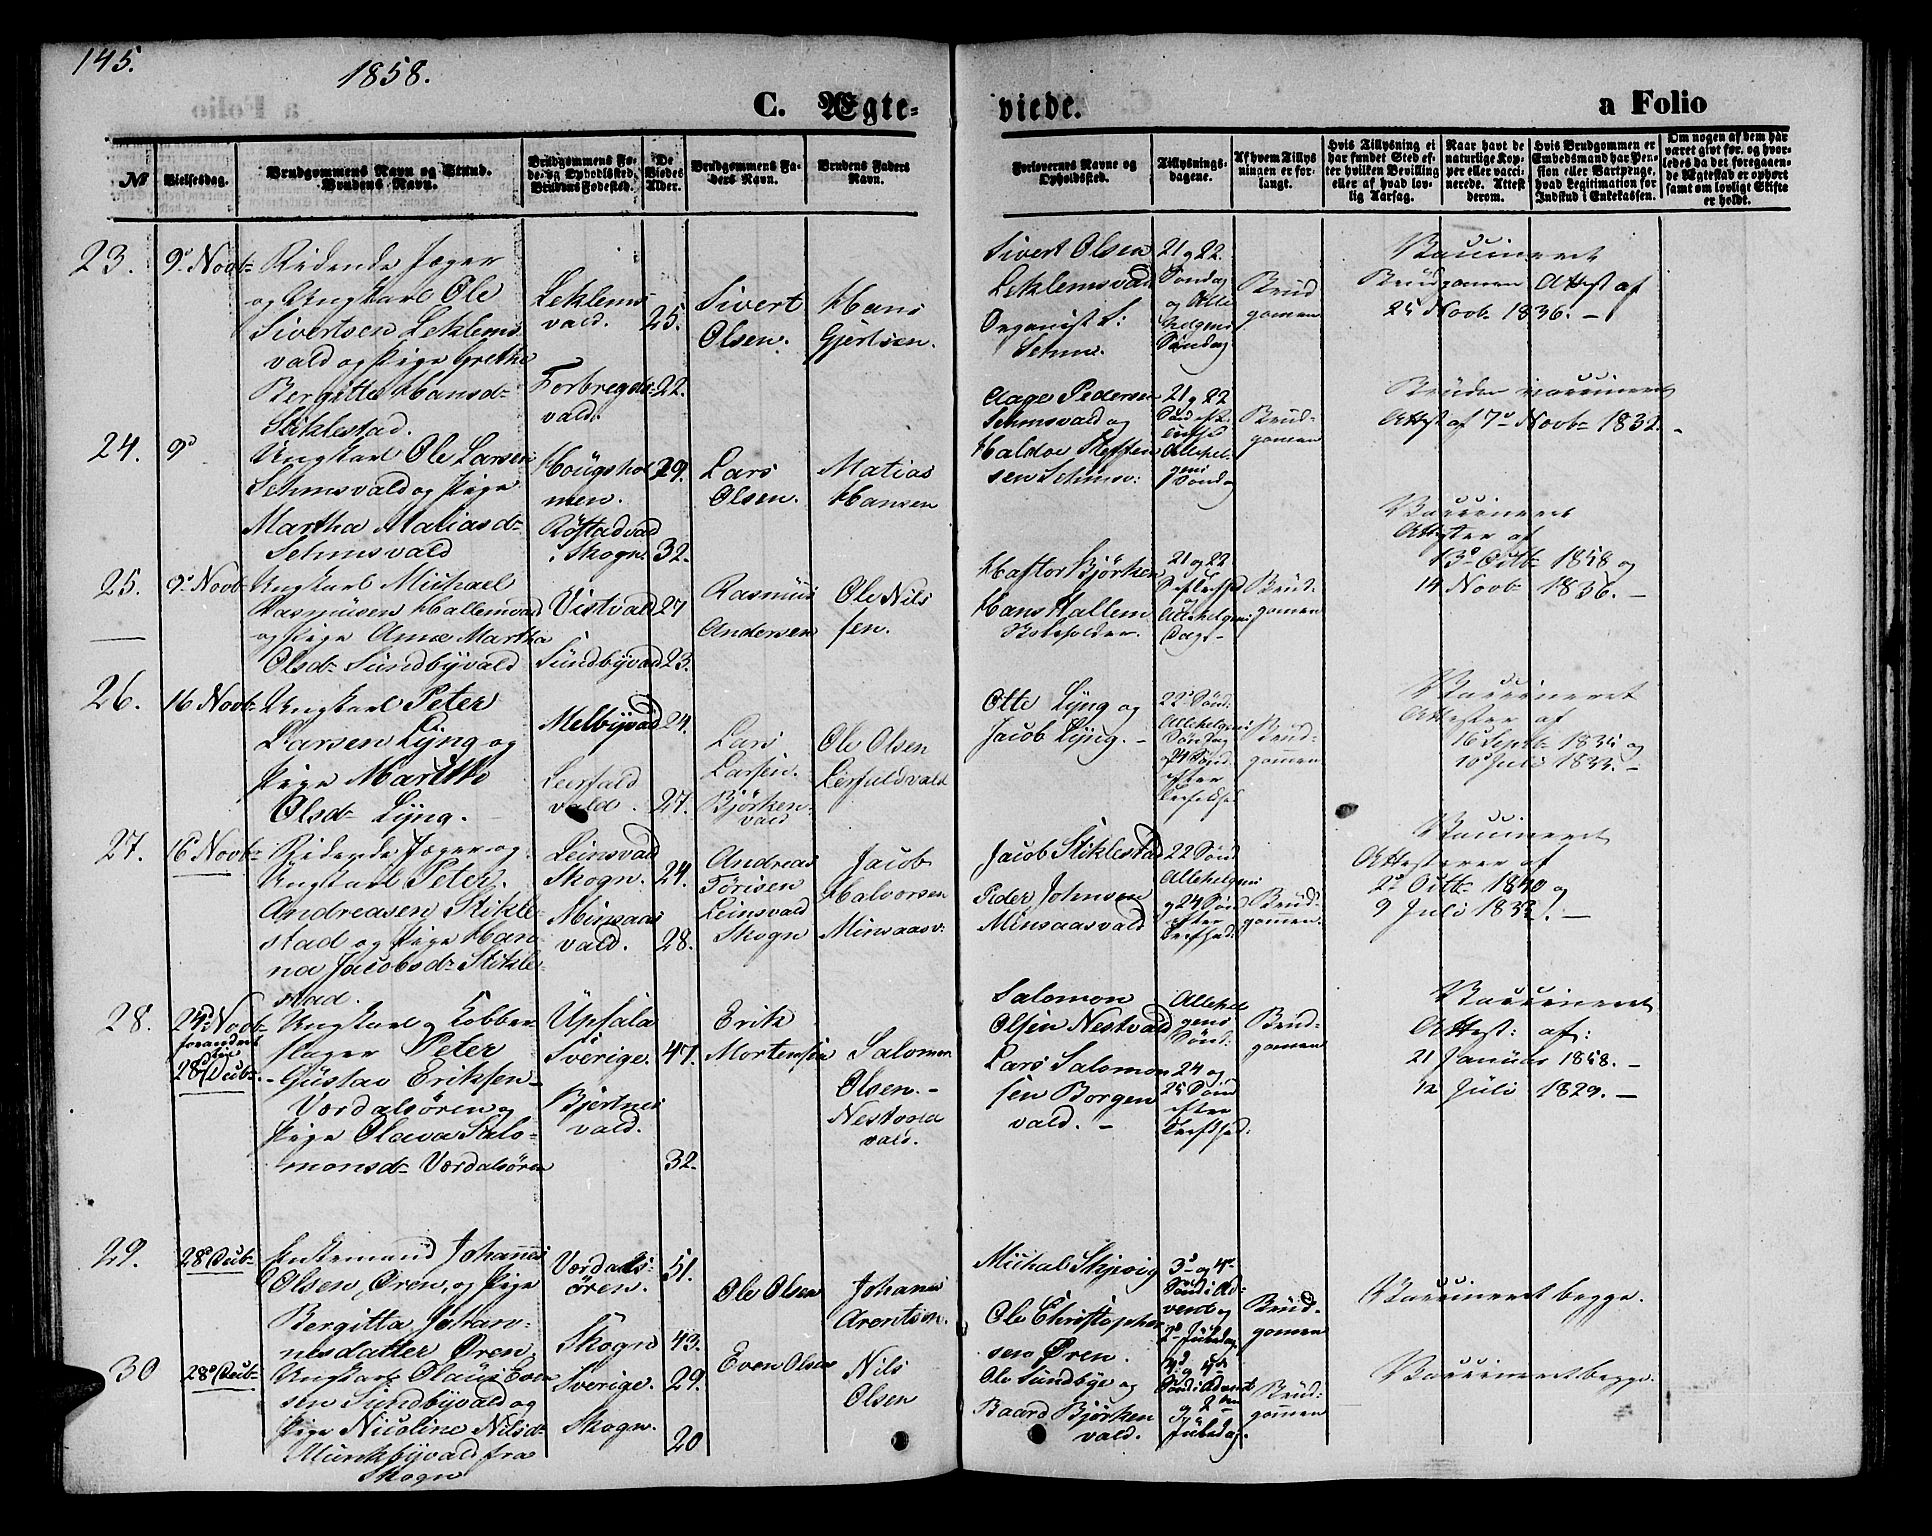 145.
1858.
C. Ægte-
viede.
a Folio
№
Vielsesdag.
Brudgommens Navn og Stand.
Brudens Navn.
Brudgommens Fø-
de- og Opholdssted.
Brudens Fødested.
De
Viedes
Alder.
Brudgommens Fa-
ders Navn.
Brudens Faders
Navn.
Forlovernes Navne og
Opholdssted.
Tillysnings-
dagene.
Af hvem Tillys-
ningen er for-
langt.
Hvis Tillysning ei
har fundet Sted ef-
ter hvilken Bevilling
eller af hvad lov-
lig Aarsag.
Naar havt de
naturlige Kop-
per eller vacci-
nerede. Attest
derom.
Hvis Brudgommen er
Embedsmand har Pen-
sion eller Vartpenge,
hvad Legitimation for
Indskud i Enkekassen.
Om nogen af dem har
været givt før, og hvor-
ledes da det foregaaen-
de Ægteskab er ophørt
samt om lovligt Skifte
er holdt.
23.
9d Novb-
Ridende Jæger
og Ungkarl Ole
Sivertsen Leklems
vald og Pige Grethe
Bergitte Hansd-
Stiklestad.
Leklems
vald.
Forbregds-
vald.
25.
22.
Sivert
Olsen.
Hans
Gjertsen.
Sivert Olsen
Leklemsvald
Organist S:
Sehm.
21 og 22
Søndag
og Alle
helgens
Søndag
Brud
gomen
Vaccineret
Brudgomen Attest af
25 Novb- 1836. -
Bruden vaccineret
Attest af 17d Novb- 1832. -
24.
9d
Ungkarl Ole Larsen
Sehmsvald og Pige
Martha Matiasd-
Sehmsvald
Hougshol
men.
Røstadvad
i Skogn
29.
32.
Lars
Olsen.
Matias
Hansen
Aage Pedersen
Sehmsvald og
Haldoe Steffen
sen Sehmsv:
21 og 22
Allehel
gens
Søndag
Brud-
gomen
Vaccineret
Attester af
13d Octb- 1858 og
14 Novb 1836. -
25.
9d Novb-
Ungkarl Michael
Rasmusen Hallemvad
og Pige Ane Martha
Olsd- Sundbyvald
Vistvald
Sundbyvad
27
23.
Rasmus
Andersen
Ole Nils
sen.
Haftor Bjørken
Hans Hallem
21 og 22
Allehelgens
Dags-
Brud-
gomen
26.
16 Novb-
Ungkarl Peter
Larsen Lyng og
Pige Marithe
Olsd- Lyng.
Melbyvad
Leirfald
vald.
24.
27.
Lars
Larsen.
Bjørken
vald
Ole Olsen
Leirfuldvald
Otte Lyng og
Jacob Lyng. -
22d Sønd:
Allehelgens
Søndag
og 24 Sønd
efter
Brud-
gomen
Vaccineret
Attester af
16 Septb- 1835 og
10d Juli 1833. -
27.
16d Novb-
Ridende Jæger og
Ungkarl Peter
Andreasen Stikle-
stad og Pige Han-
na Jacobsd- Stikle-
stad.
Leinsvad
Skogn.
Minsaas
vald.
24.
28.
Andreas
Torisen
Leinsvald
Skogn
Jacob
Halvorsen
Minsaasv:
Jacob Stiklestad
Peder Johnsen
Minsaasvald
22 Sønd
Allehelgens
og 24 Sønd
efter
Brud-
gomen.
Vaccineret
Attesterer af
2d Octb- 1840 og
9 Juli 1833! -
28.
24d Novb-
forandret
til
28d Decb-
Ungkarl og Kobber-
slager Peter
Gustav Eriksen
Værdalsøren og
Pige Olava Salo-
monsd- Værdalsøren
Upsala
Sverige.
Bjertnes
vald.
47.
32.
Erik
Mortensen
Salomon
Olsen. -
Nestvold
vald.
Salomon
Olsen Nestvald
Lars Salomon
sen Borgen
vald. -
Allehel
gens
Sønd:
24 og
25 Sønd
efter
Brud-
gomen
Vaccineret
Attest: af:
21 Januar 1858. -
12 Juli 1829. -
29.
28d Decb-
Enkemand Johannes
Olsen Øren, og Pige
Bergitta Johan-
nesdatter Øren
Værdals-
øren.
Skogn
51.
43.
Ole Olsen
Johanes
Arentsen.
Michal Skjevig
Ole Christopher
sen Øren.
3d og 4de
Sønd i Ad-
vent og
2d Juledag
Brud-
gomen
Vaccineret begge.
30
28d Decb-
Ungkarl Olaus Even
sen Sundbyvald og
Pige Nicoline Nilsd-
Munkbyvald fra
Skogn
Sverige.
Skogn.
29.
20
Even Olsen
Nils
Olsen
Ole Sundbye og
Baard Bjørken
vald.
Sønd i Advent
og 2den
Juledag.
Brud-
gomen
Vaccineret begge.